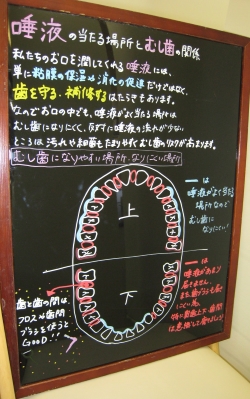 唾液の当たる場所とむし歯の関係
私たちのお口を潤してくれる唾液には、
単に粘膜の保湿や消化の促進だけではなく、
歯を守る・補修するはたらきもあります。
なのでお口の中でも、唾液がよく当たる場所は
むし歯になりにくく、反対に唾液の流れが少ない
ところは汚れや細菌もたまりやすくむし歯のリスクが高まります。
むし歯になりやすい場所・なりにくい場所
上
下
は
唾液がよく当たる
場所なので
むし歯に
なりにくい!
は
唾液があまり
届きません。
また歯ブラシも届き
にくい為、
特に奥歯上下・歯間
は意識して磨きましょう
歯と歯の間は、
フロスや歯間
ブラシを使うと
GOOD!!